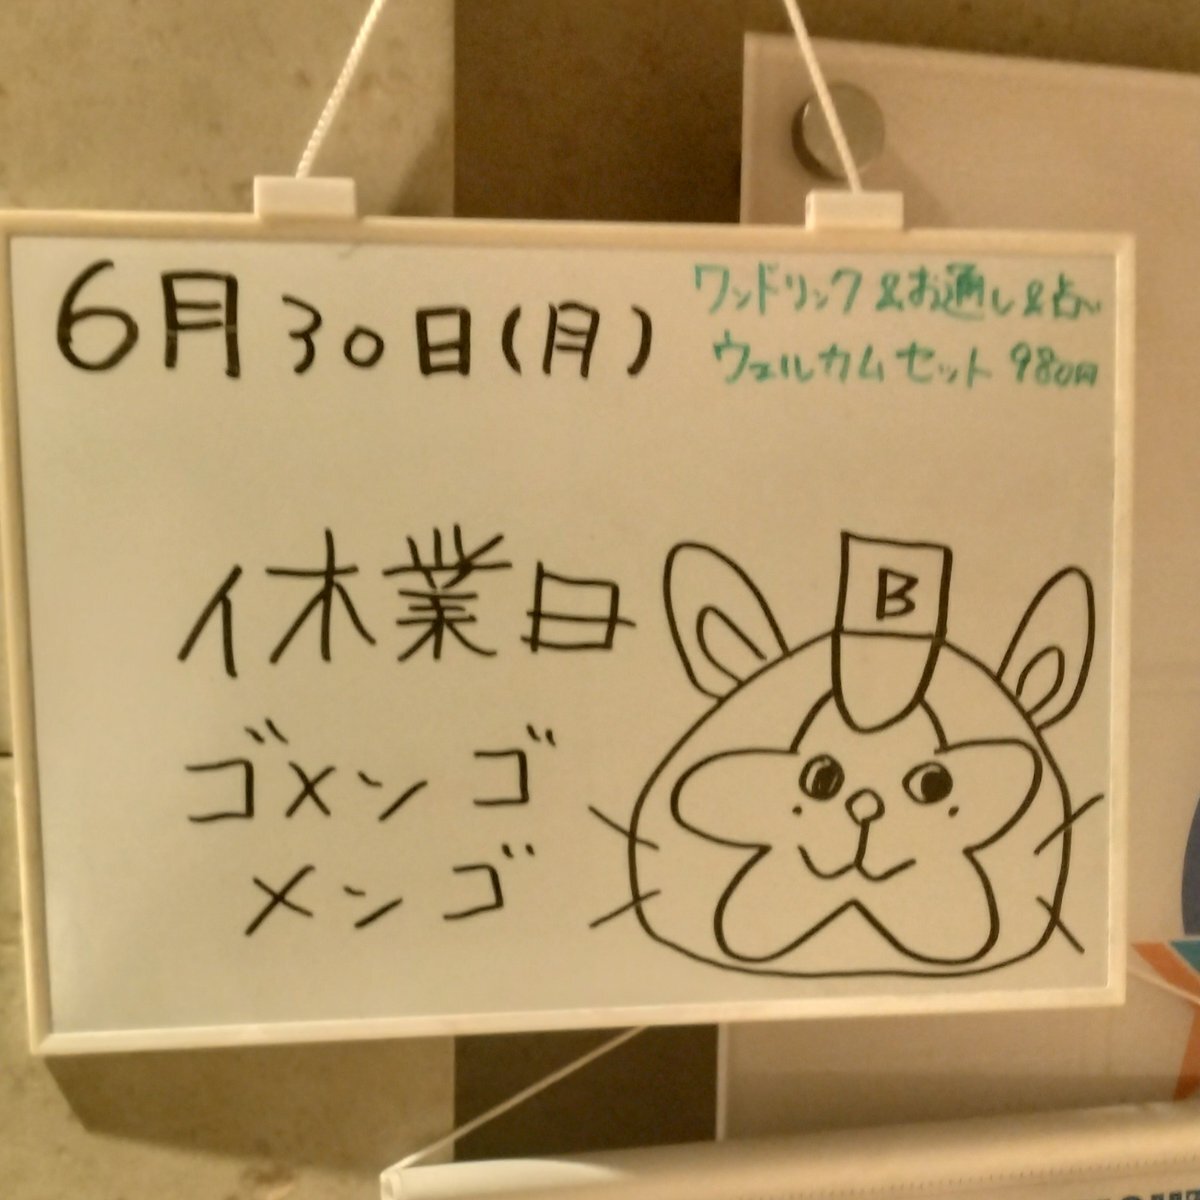 6月30日(月)
ワンドリンク&お通し&占い
ウェルカムセット 980円
休業日
ゴメンゴ
メンゴ
B